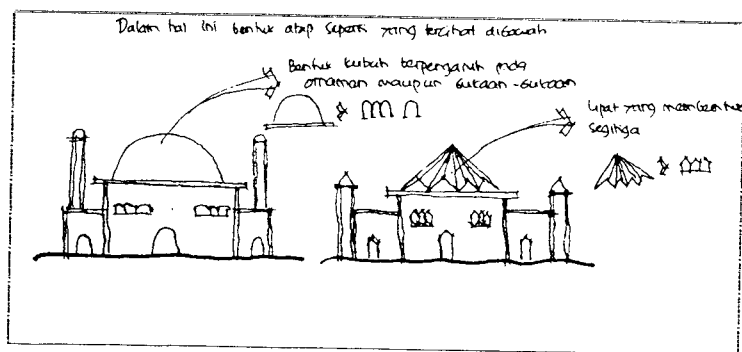 Dalam hal ini bentuk atap seperti yang terlihat dibawah
Bentuk kubah terpengaruh pada
ornamen maupun bukaan-bukaan
Lipat yang membentuk
segitiga